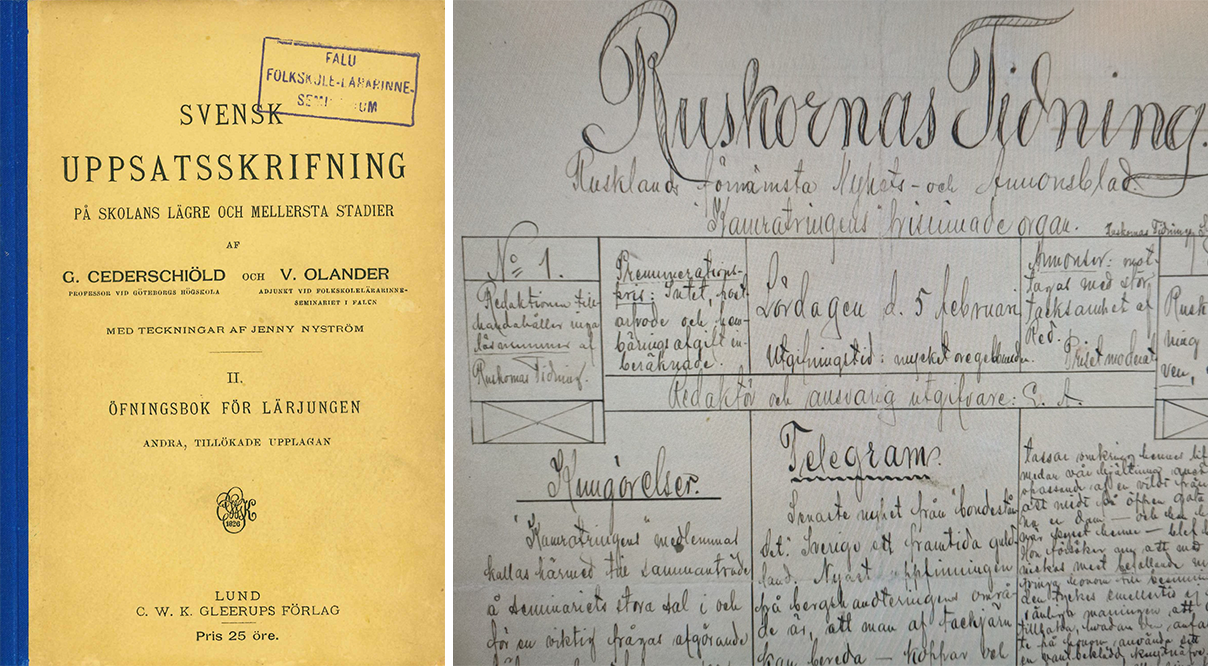 FALU
FOLKSKOLE-LÄRARINNE-
SEMI UM
SVENSK
UPPSATSSKRIFNING
PÅ SKOLANS LÄGRE OCH MELLERSTA STADIER
AF
G. CEDERSCHIÖLD OCH V. OLANDER
PROFESSOR VID GÖTEBORGS HÖGSKOLA
ADJUNKT VID FOLKSKOLELÄRARINNE-
SEMINARIET I FALUN
MED TECKNINGAR AF JENNY NYSTRÖM
II.
ÖFNINGSBOK FÖR LÄRJUNGEN
ANDRA, TILLÖKADE UPPLAGAN
1826
LUND
C. W. K. GLEERUPS FÖRLAG
Pris 25 öre.
Ruskornas Tidning.
Rusklands förnämsta Nyhets- och Annonsblad.
"Kamratringens" frisinnade organ.
No 1.
Redaktionen till-
handahåller inga
lösnummer af
Ruskornas Tidning.
Prenumerations-
pris: Intet, post-
arfvode och hem-
bärningsafgift in-
beräknade.
Lördagen d. 5 februari
Utgifningstid: mycket oregelbunden.
Annonser: mot-
tagas med stor
tacksamhet af
Red.
Priset moderat
Rusk
ning
ven,
Redaktör och ansvarig utgifvare: E. A.
Kungörelser.
"Kamratringens" medlemmar
kallas härmed till sammanträde
å seminariets stora sal i och
för en viktig frågas afgörande
Telegram.
Senaste nyhet från bondestån
det: Sverige ett framtida guld-
land. Nyaste uppfinningen
från bergshandteringens områ-
de är, att man af tackjärn
kan bereda — koppar
tassar omkring hennes
medan vår hjältinna
af en vildt
att midt på öppen gata